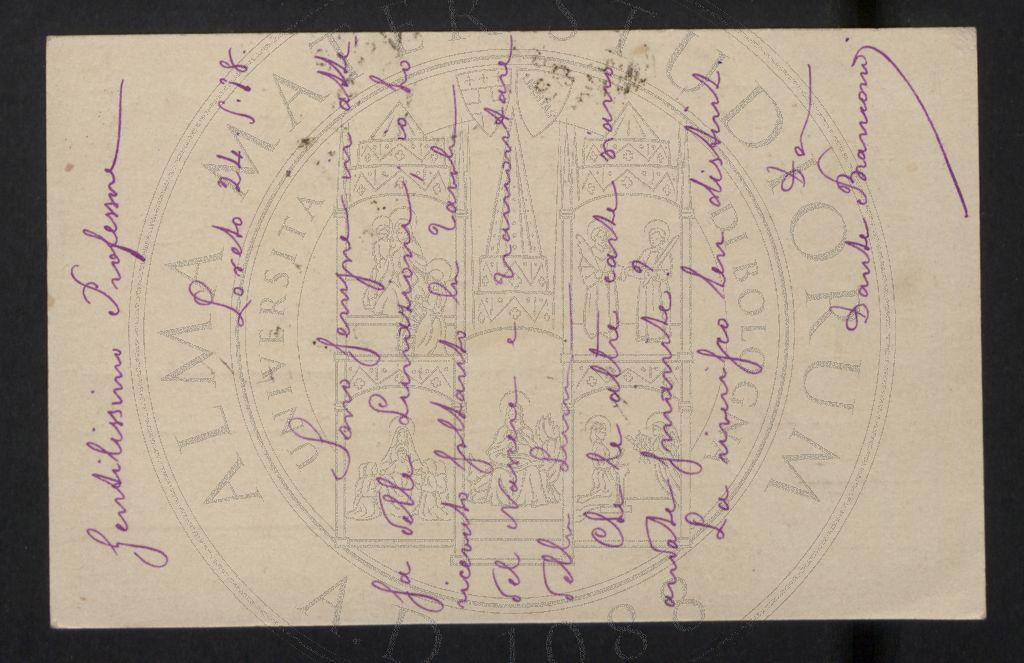 Gentilissimo Professore
Loreto 24.5.18.
Sono sempre in atte-
sa delle Lunazioni; io ho
ricevuto soltanto la Tavola
del Nascere e Tramontare
della Luna
Che le altre carte siano
andate smarrite?
La riverisco ben distint.
Dante Brancondi
ALMA MATER STUDIORUM
UNIVERSITÀ DI BOLOGNA
A.D. 1088